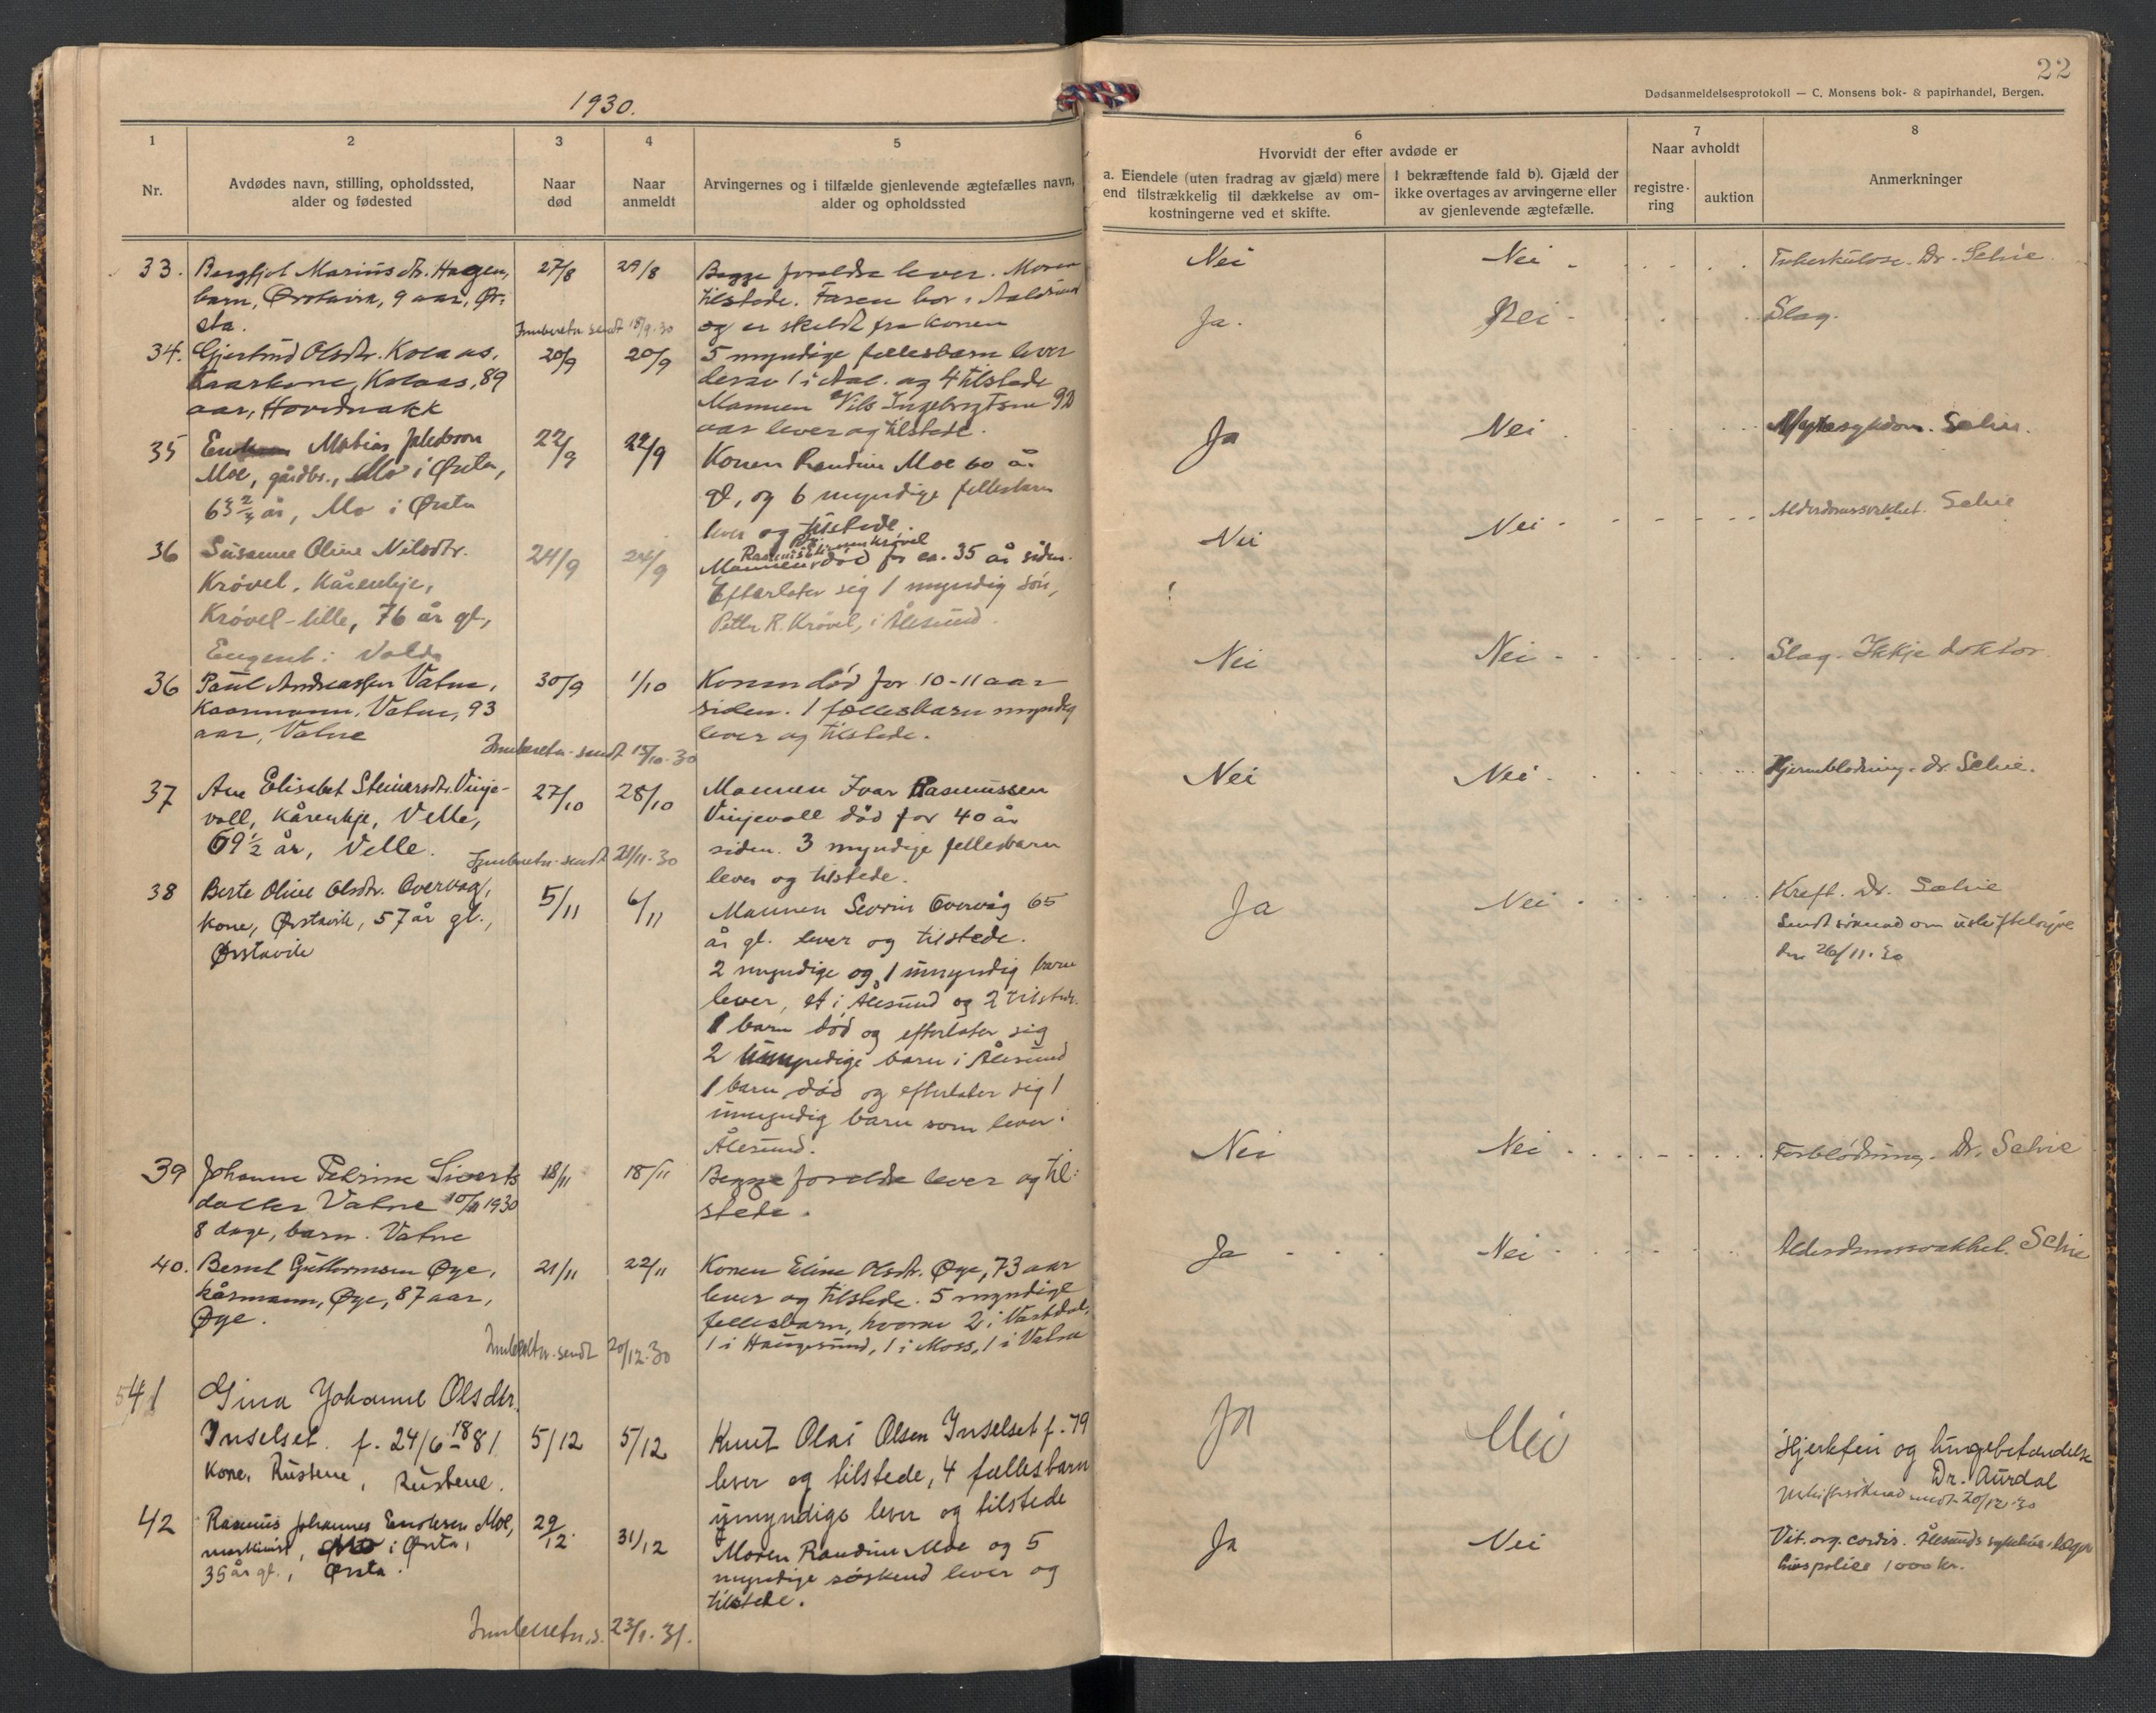 1930.
22
Dødsanmeldelsesprotokoll — C. Monsens bok- & papirhandel, Bergen.
1
Nr.
2
Avdødes navn, stilling, opholdssted,
alder og fødested
3
Naar
død
4
Naar
anmeldt
5
Arvingernes og i tilfælde gjenlevende ægtefælles navn,
alder og opholdssted
6
Hvorvidt der efter avdøde er
a. Eiendele (uten fradrag av gjæld) mere
end tilstrækkelig til dækkelse av om-
kostningerne ved et skifte.
I bekræftende fald b). Gjæld der
ikke overtages av arvingerne eller
av gjenlevende ægtefælle.
7
Naar avholdt
registre-
ring
auktion
8
Anmerkninger
33.
Marius dtr. Hagen,
barn, Ørstavik, 9 aar, Ør-
sta.
27/8
29/8
Begge foreldre lever. Moren
tilstede. Faren bor i Aalesund
og er skeldt fra konen
Nei
Nei
Tuberkulose. Dr. Selvie.
Innberetn sendt 15/9-30
34.
Gjertrud Olsdtr. Kolaas,
kaarkone, Kolaas, 89
aar, Hovdnakk
20/9
20/9
5 myndige fællesbarn lever
derav 1 i Aal. og 4 tilstede
Mannen Nils Ingebrigtsen 92
aar lever og tilstede.
Ja.
Nei
Slag.
35
Matias Jakobson
Moe, gårdbr., Mo i Ørsta,
63 3/4 år, Mo i Ørsta
22/9
22/9
Konen Randine Moe 60 år
gl, og 6 myndige fellesbarn
lever og tilstede.
Ja
Nei
Selvie.
36
Susanne Oline Nilsdtr.
Krøvel, Kårenkje,
Krøvel-lille, 76 år gl.,
Volda
24/9
24/9
Rasmus Krøvel
Mannen død for ca. 35 år siden.
Efterlater sig 1 myndig søn,
Petter R. Krøvel, i Ålesund.
Nei
Nei
Alderdomssvakhet. Selvie
36
Paul Andreassen Vatne,
Kaarmann, Vatne, 93
aar, Vatne
30/9
1/10
Konen død for 10-11 aar
siden. 1 fællesbarn myndig
lever og tilstede.
Nei
Nei
Slag. Ikkje doktor.
Innberetn. sendt 15/10-30
37
Ane Elisabet Steinarsdtr. Vinje-
voll, Kårenkje, Velle,
69 1/2 år, Velle.
27/10
28/10
Mannen Ivar Rasmussen
Vinjevoll død for 40 år
siden. 3 myndige fellesbarn
lever og tilstede.
Nei
Nei
Hjerneblødning. dr. Selvie.
Innberetn. sendt 21/11-30
38
Berte Oline Olsdtr. Overvåg,
kone, Ørstavik, 57 år gl.,
Ørstavik
5/11
6/11
Mannen Sevrin Overvåg 65
år gl. lever og tilstede.
2 myndige og 1 umyndig barn
lever, et i Ålesund og 2 tilstede.
1 barn død og efterlater sig
2 umyndige barn i Ålesund
1 barn død og efterlater sig 1
umyndig barn som lever i
Ålesund.
Ja
Nei
Kreft. Dr. Selvie
Sendt søknad om uskifteløyve
den 26/11-30
39
Johanne Petrine Siverts
datter Vatne 10/11 1930
8 dage, barn. Vatne
18/11
18/11
Begge foreldre lever og til-
stede.
Nei
Nei
Forblødning. Dr. Selvie
40.
Bernt Guttormsen Øye,
kårmann, Øye, 87 aar,
Øye.
21/11
22/11
Konen Eline Olsdtr. Øye, 73 aar
lever og tilstede. 5 myndige
fellesbarn, hvorav 2 i Vartdal,
1 i Haugesund, 1 i Moss, 1 i Vatne
Ja
Nei
Alderdomssvakhet. Selvie
Innberetn. sendt 20/12-30
41
Gina Johanne Olsdtr.
Inselset. f. 24/6-1881
Kone, Rustene, Rustene.
5/12
5/12
Knut Olai Olsen Inselset f. 79
lever og tilstede, 4 fællesbarn
umyndige lever og tilstede
Ja
Nei
Hjertefeil og lungebetændelse
Dr. Aurdal
Uskiftesøknad sendt 20/12-30
42
Rasmus Johannes Eriksen Moe,
maskinist, Mo i Ørsta,
35 år gl., Ørsta.
29/12.
31/12
Moren Randine Moe og 5
myndige søskend lever og
tilstede.
Ja
Nei
Vit. org. cordis. Ålesunds sykehus. læge
Livspolice 1000 kr.
Innberetn. s. 23/1-31.